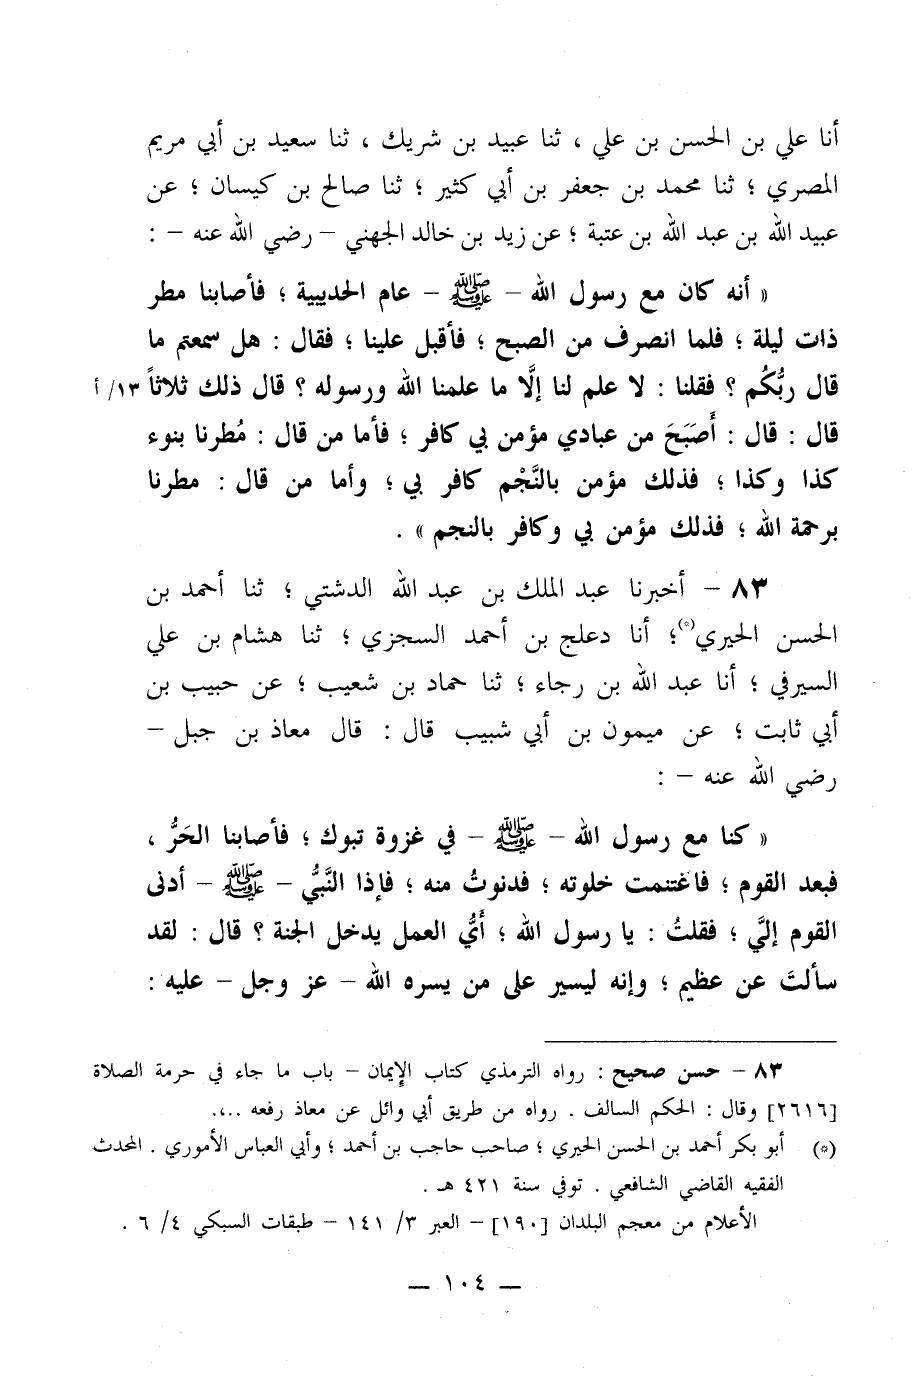 أنا علي بن الحسن بن علي ، ثنا عبيد بن شريك ، ثنا سعيد بن أبي مريم
المصري ؛ ثنا محمد بن جعفر بن أبي كثير ؛ ثنا صالح بن كيسان ؛ عن
عبيد الله بن عبد الله بن عتبة ؛ عن زيد بن خالد الجهني – رضي الله عنه – :
« أنه كان مع رسول الله – ﷺ – عام الحديبية ؛ فأصابنا مطر
ذات ليلة ؛ فلما انصرف من الصبح ؛ فأقبل علينا ؛ فقال : هل سمعتم ما
قال ربُّكُم ؟ فقلنا : لا علم لنا إلَّا ما علمنا الله ورسوله ؟ قال ذلك ثلاثاً ١٣/ أ
قال : قال : أَصبَحَ من عبادي مؤمن بي كافر ؛ فأما من قال : مُطرنا بنوء
كذا وكذا ؛ فذلك مؤمن بالنَّجْم كافر بي ؛ وأما من قال : مطرنا
برحمة الله ؛ فذلك مؤمن بي وكافر بالنجم » .
٨٣ – أخبرنا عبد الملك بن عبد الله الدشتي ؛ ثنا أحمد بن
الحسن الحيري(*)؛ أنا دعلج بن أحمد السجزي ؛ ثنا هشام بن علي
السيرفي ؛ أنا عبد الله بن رجاء ؛ ثنا حماد بن شعيب ؛ عن حبيب بن
أبي ثابت ؛ عن ميمون بن أبي شبيب قال : قال معاذ بن جبل –
رضي الله عنه – :
« كنا مع رسول الله – ﷺ – في غزوة تبوك ؛ فأصابنا الحَرُّ ،
فبعد القوم ؛ فاغتنمت خلوته ؛ فدنوتُ منه ؛ فإذا النَّبيُّ – ﷺ – أدنى
القوم إليَّ ؛ فقلتُ : يا رسول الله ؛ أَيُّ العمل يدخل الجنة ؟ قال : لقد
سألتَ عن عظيم ؛ وإنه ليسير على من يسره الله – عز وجل – عليه :
٨٣ – حسن صحيح : رواه الترمذي كتاب الإيمان – باب ما جاء في حرمة الصلاة
[٢٦١٦] وقال : الحكم السالف . رواه من طريق أبي وائل عن معاذ رفعه ..،.
(*) أبو بكر أحمد بن الحسن الحيري ؛ صاحب حاجب بن أحمد ؛ وأبي العباس الأموري . المحدث
الفقيه القاضي الشافعي . توفي سنة ٤٢١ هـ .
الأعلام من معجم البلدان [١٩٠] – العبر ٣/ ١٤١ – طبقات السبكي ٤/ ٦ .
— ١٠٤ —